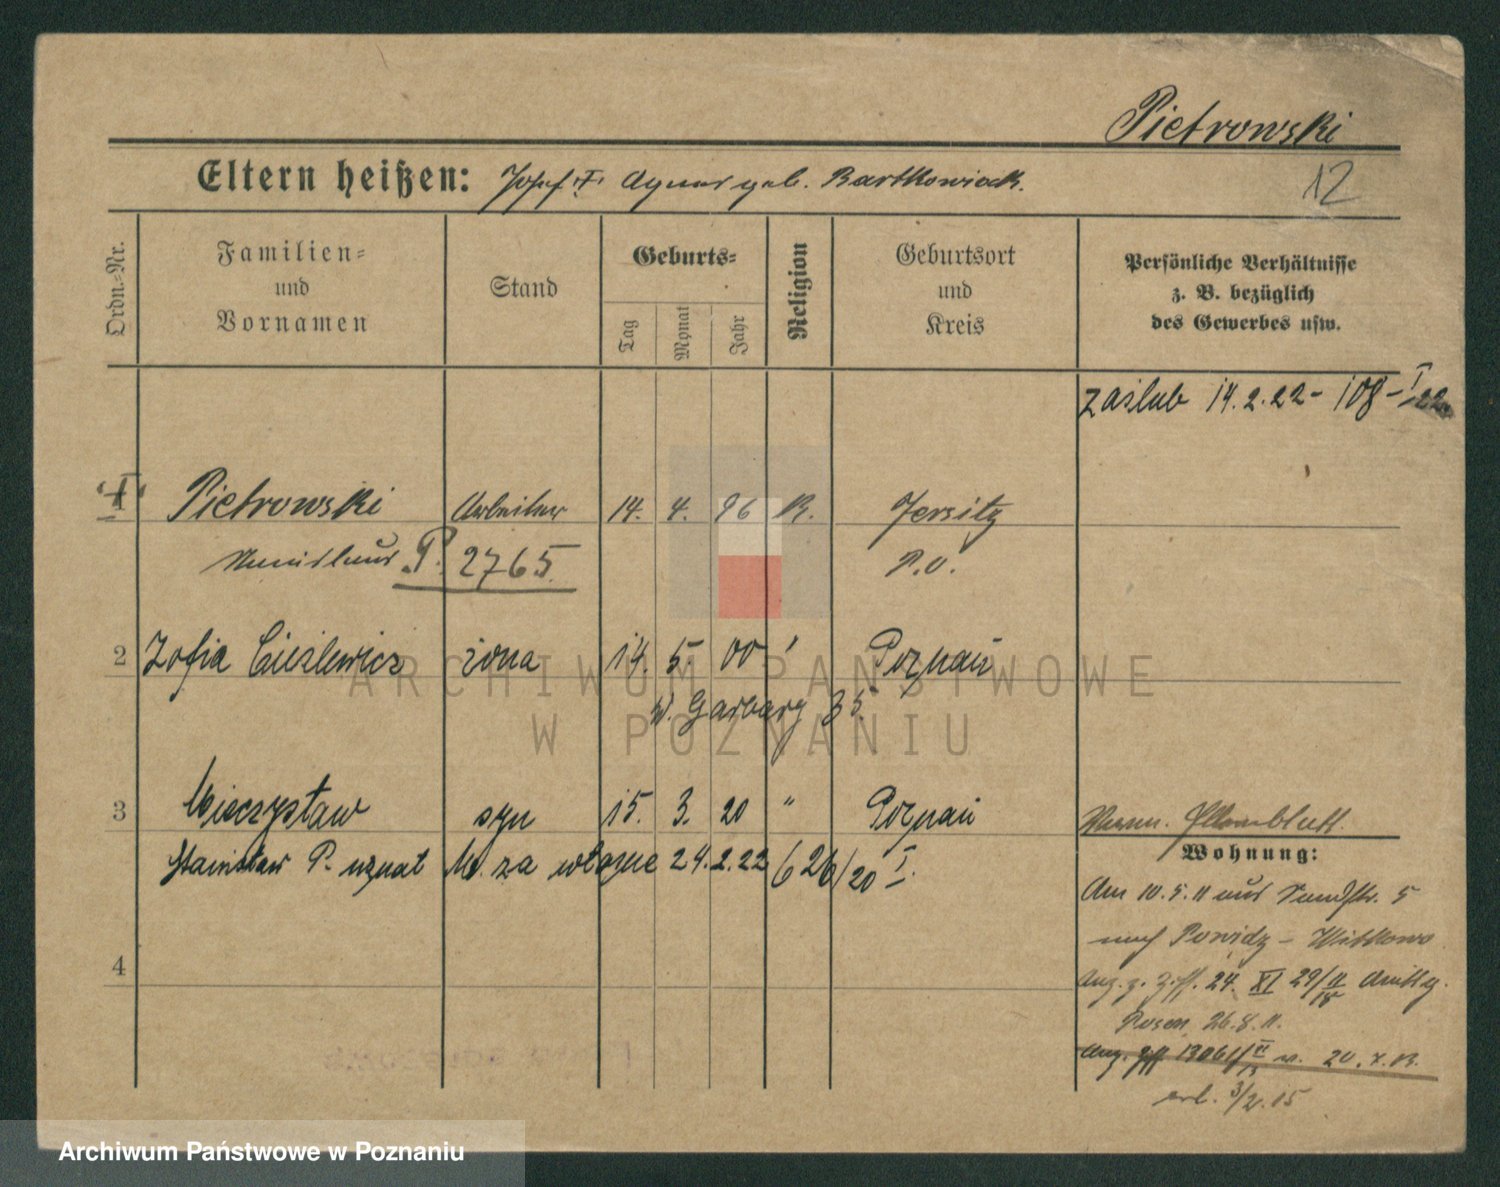 Pietrowski
12
Eltern heißen: Josef "†" Agnes geb. Bartkowiak.
Ordn.=Nr.
Familien=
und
Vornamen
Stand
Geburts=
Tag
Monat
Jahr
Religion
Geburtsort
und
Kreis
Persönliche Verhältnisse
z. B. bezüglich
des Gewerbes usw.
zaślub 14.2.22 - 108 - I 22
1 Pietrowski Arbeiter 14. 4. 96 K. Jersitz
Stanislaus P. 2765 P.O.
2 Zofia Cieślewicz żona 14. 5. 00 " Poznań
W. Garbary 35.
3 Mieczysław syn 15. 3. 20 " Poznań
Stanisław P. uznał M. za własne 24.2.22 626/20 I.
4
Wohnung:
Am 10.5.11 aus Sandstr. 5
nach Powidz - Witkowo
Anz. z. Ziff. 24. XI 29/11 18
Posen 26.8.11.
Anz. 1306 II 13 v. 20.X.13.
erl. 3/2.15
ARCHIWUM PAŃSTWOWE
W POZNANIU
Archiwum Państwowe w Poznaniu